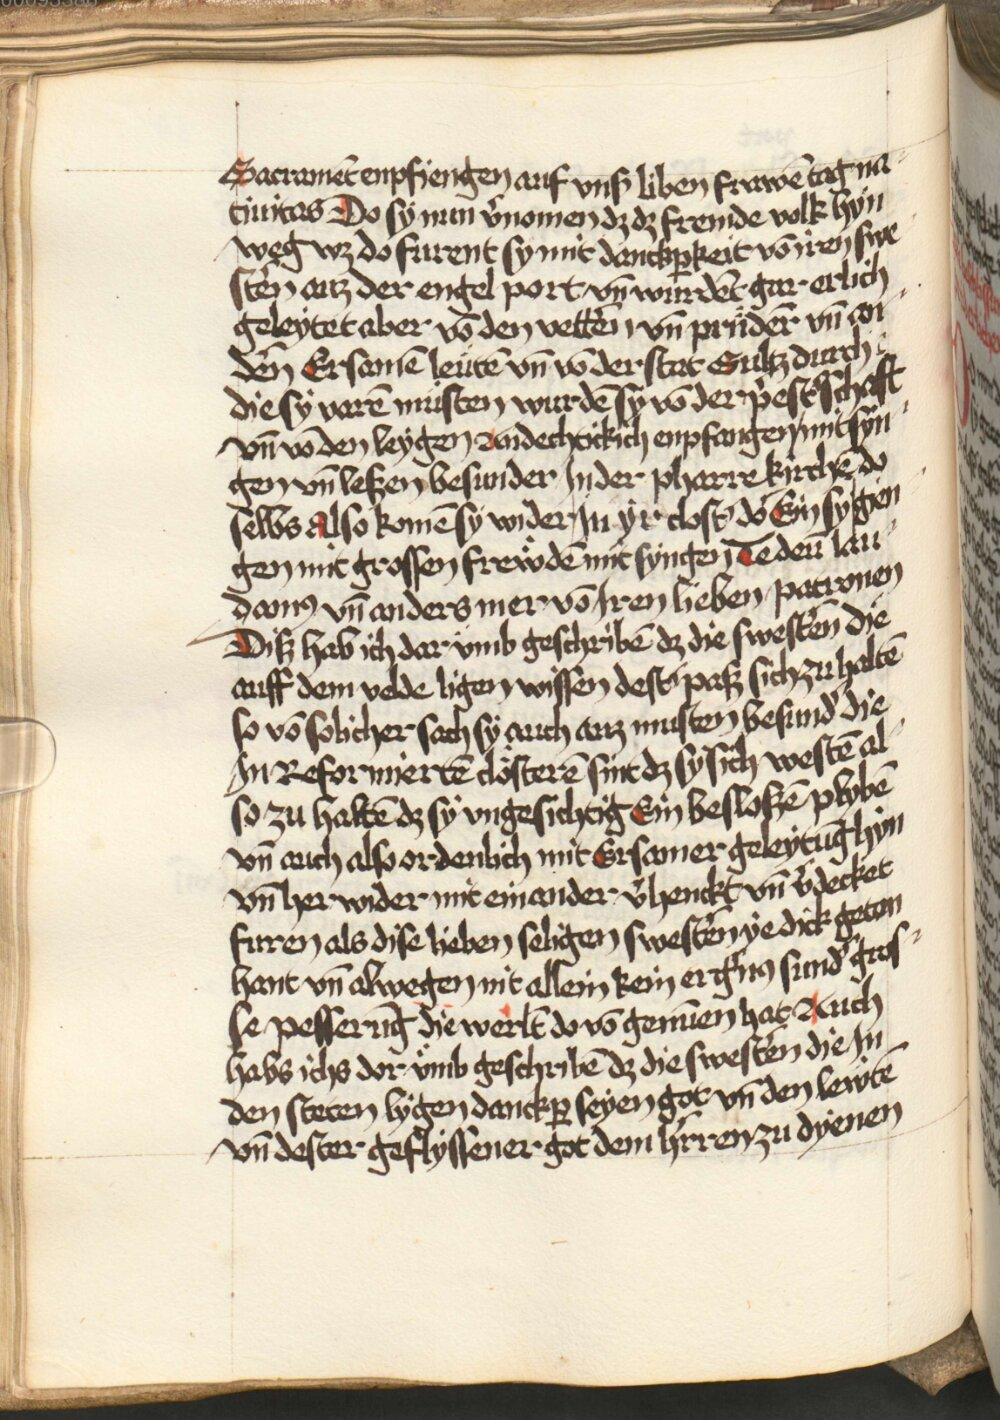 Sacramēt enpfiengen auf vnß liben frawē tag na
tiuitas Do sy nun v̄nomen dz dz fremde volk hyn
weg wz do furent sy mit danckp̲keit vō iren swe
stēn auz der engel port vn̄ wurdēt gar erlich
geleytet aber vō den vettēn vn̄ prüdēr vn̄ an
dēn Ersamē leutē vn̄ vō der stat Sultz durch
die sy varē musten wurdē sy vō der p̄estschaft
vn̄ vō den leygen Andechticklich enpfangen mit syn
gen vn̄ leßen besunder In der pharre kirchē do
selbs Also komē sy wider In yr clost̄ do Ein sy gien
gen mit grossen frewdē mit syngen Te deū lau
damꝰ vn̄ anders mer vō Iren lieben patronen
Diß hab ich dar vmb geschribē dz die swestēn die
auff dem velde ligen wissen dest̄ paß sich zu haltē
so vō solicher sach sy auch auz musten besund̄ die
In Reformiertē clösterē sint dz sy sich westē al
so zu haltē dz sy vngesichtig Ein besloßē plybē
vn̄ auch also ordenlich mit Ersamer geleytūg hyn
vn̄ her wider mit einander v̄henckt vn̄ v̄decket
furen als dise lieben seligen swestēn ye dick geton
hant vn̄ alwegen nit allein kein erḡnꝰ sund̄ gros
se pesserūg die werlt do vō genūen hat Auch
habs ichs dor vmb geschribē dz die swestēn die In
den steten lygen danckp̲ seyen got vn̄ den lewtē
vn̄ dester geflyssener got dem h̄rren zu dyenen